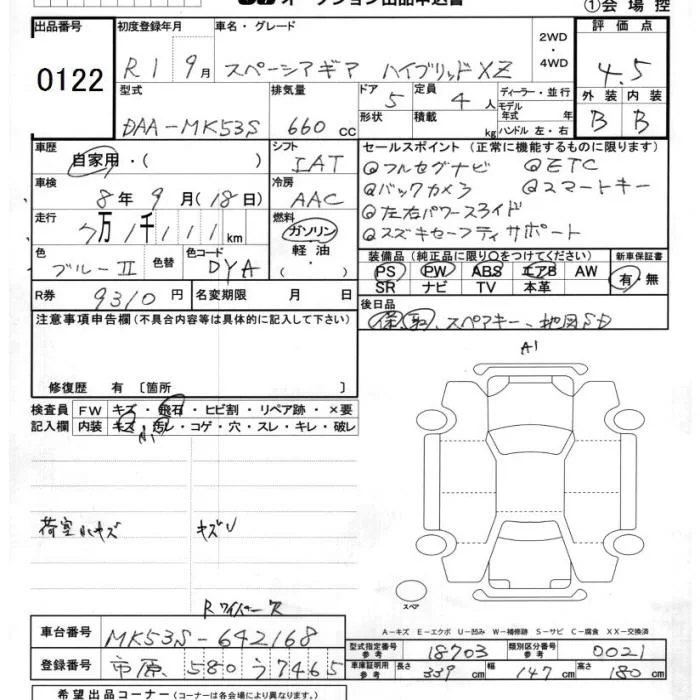 ①会場控
出品番号 初度登録年月 車名・グレード 2WD・4WD 評価点
0122 R1 9月 スペーシアギア ハイブリッドXZ 4.5
型式 排気量 ドア 定員 ディーラー・並行 外装 内装
DAA-MK53S 660cc 5 4人 形状 積載 kg モデル年式 年 ハンドル 左・右 B B
車歴 自家用・( ) シフト IAT セールスポイント (正常に機能するものに限ります)
◎フルセグナビ ◎ETC
車検 8年9月(18日) 冷房 AAC ◎バックカメラ ◎スマートキー
◎左右パワースライド
走行 万1千111km 燃料 ガソリン・軽油・( ) ◎スズキセーフティサポート
色 ブルーⅡ 色替 色コード DYA
装備品 (純正品に限り○をつけてください) 新車保証書
PS PW ABS エアB AW 有・無
SR ナビ TV 本革
R券 9310円 名変期限 月 日
後日品
保、取、スペアキー、地図SD
注意事項申告欄(不具合内容等は具体的に記入して下さい)
A1
修復歴 有 〔箇所 〕
検査員記入欄 FW キズ・飛石・ヒビ割・リペア跡・×要
内装 キズ・汚レ・コゲ・穴・スレ・キレ・破レ
荷室 キズ キズU
スペア
Rワイパー欠
A-キズ E-エクボ U-凹み W-補修跡 S-サビ C-腐食 XX-交換済
車台番号 MK53S-642168
型式指定番号 参考 18703 類別区分番号 参考 0021
登録番号 市原 580 う 7465
車庫証明用 参考 長さ 339cm 幅 147cm 高さ 180cm
希望出品コーナー (コーナーは各会場により異なります。)